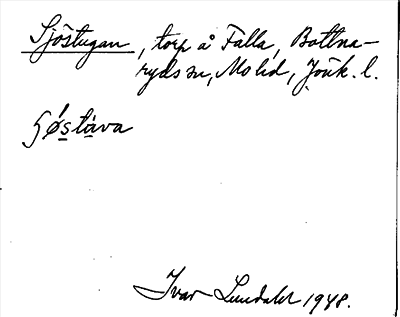 Sjöstugan, torp å Falla, Bottna-
ryds sn, Mo hd, Jönk. l.
ʃǿstava
Ivar Lundahl 1948.